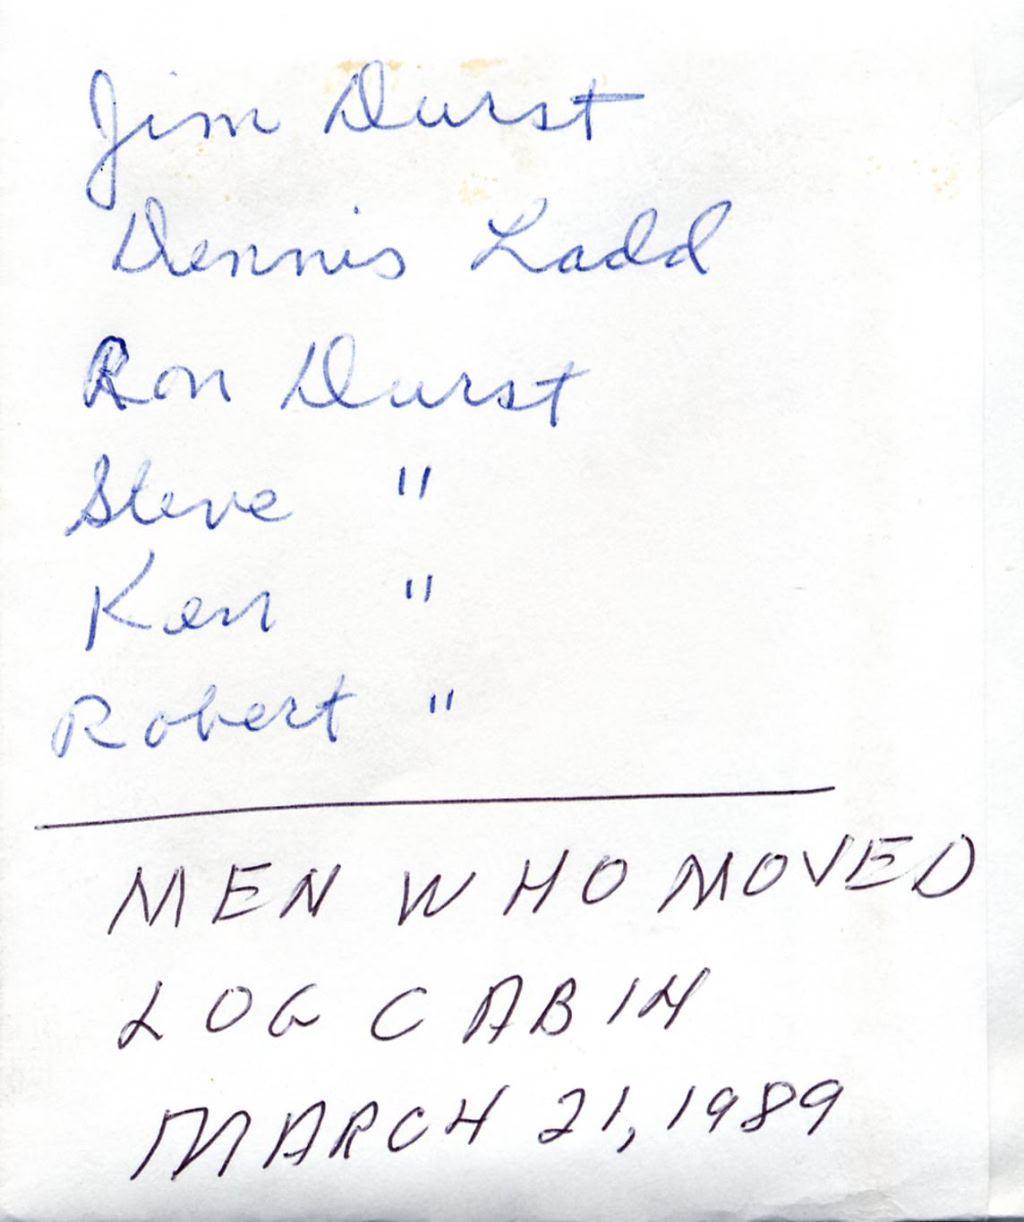 Jim Durst
Dennis Ladd
Ron Durst
Steve "
Ken "
Robert "
MEN WHO MOVED
LOG CABIN
MARCH 21, 1989